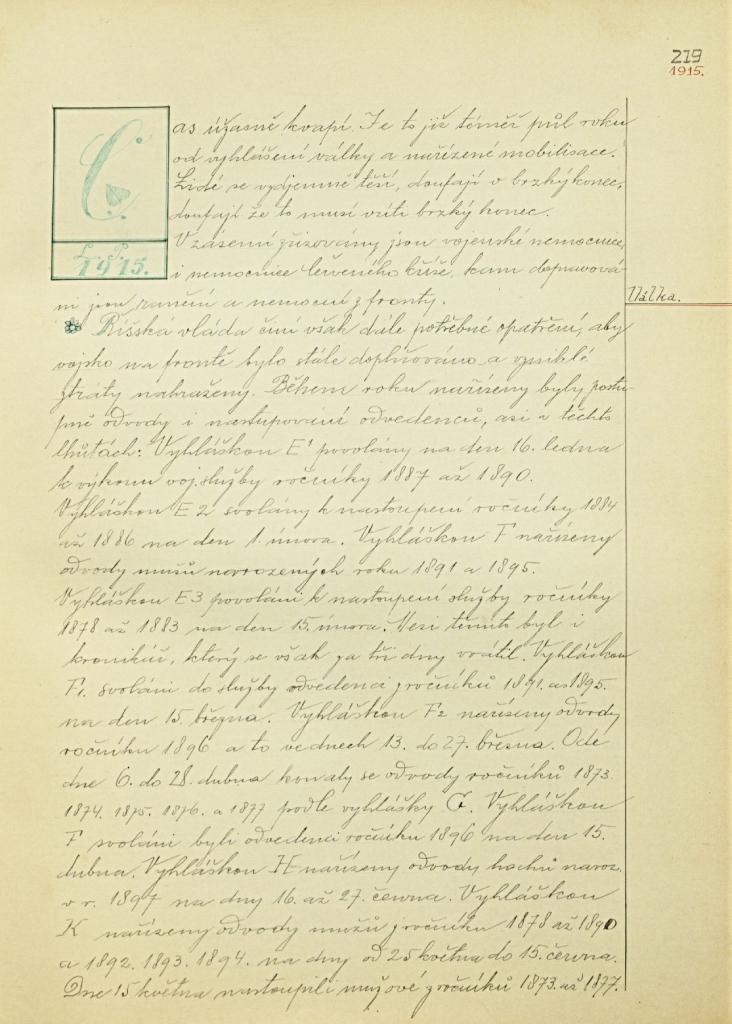 219
1915.
Čas úžasně kvapí. Je to již téměř půl roku
od vyhlášení války a nařízené mobilisace.
Lidé se vzájemně těší, doufají v brzký konec,
doufají že to musí vzíti brzký konec.
V zázemí zřizovány jsou vojenské nemocnice,
i nemocnice červeného kříže, kam dopravová-
L.P.
1915.
ni jsou ranění a nemocní z fronty.
Válka.
Říšská vláda činí však dále potřebné opatření, aby
vojsko na frontě bylo stále doplňováno a vzniklé
ztráty nahraženy. Během roku nařízeny byly postu-
pně odvody i nastupování odvedenců, asi v těchto
lhůtách: Vyhláškou E1 povolány na den 16. ledna
k výkonu voj. služby ročníky 1887 až 1890.
Vyhláškou E2 svolány k nastoupení ročníky 1884
až 1886 na den 1. února. Vyhláškou F nařízeny
odvody mužů narozených roku 1891 a 1895.
Vyhláškou E3 povoláni k nastoupení služby ročníky
1878 až 1883 na den 15. února. Mezi těmito byl i
kronikář, který se však za tři dny vrátil. Vyhláškou
F1. svoláni do služby odvedenci z ročníků 1891. až 1895.
na den 15. března. Vyhláškou F2 nařízeny odvody
ročníku 1896 a to ve dnech 13. do 27. března. Ode
dne 6. do 28. dubna konaly se odvody ročníků 1873.
1874. 1875. 1876. a 1877 podle vyhlášky G. Vyhláškou
F svoláni byli odvedenci ročníku 1896 na den 15.
dubna. Vyhláškou H nařízeny odvody hochů naroz.
v r. 1897 na dny 16. až 27. června. Vyhláškou
K nařízeny odvody mužů z ročníku 1878 až 1890
a 1892. 1893. 1894. na dny od 25 května do 15. června.
Dne 15 května nastoupili mužové z ročníků 1873. až 1877.